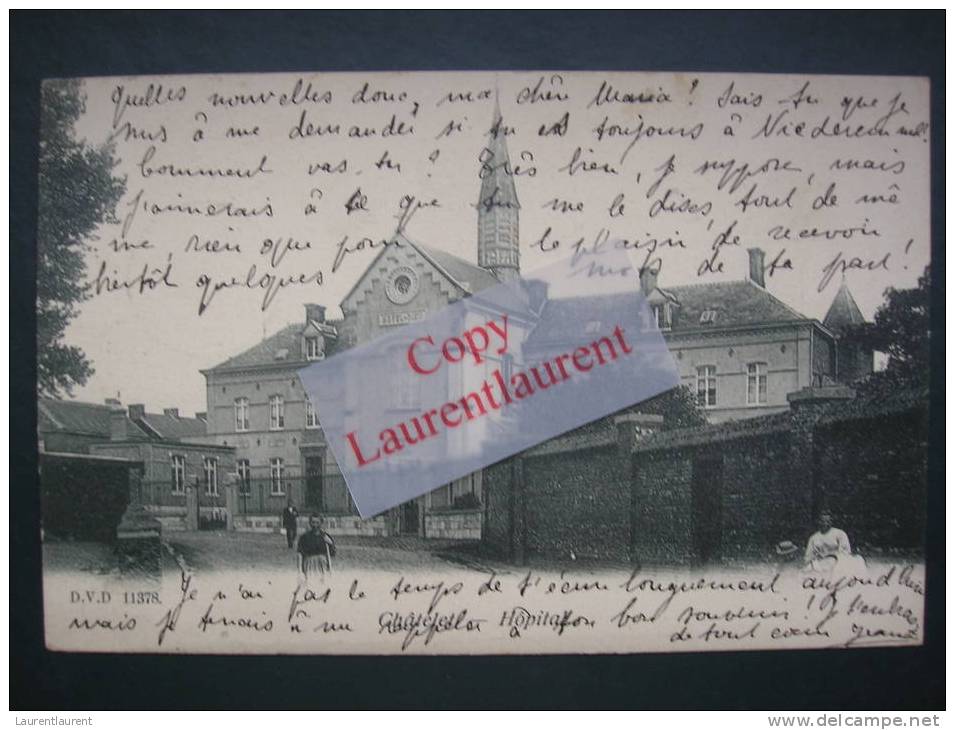 Quelles nouvelles donc, ma chère Maria! Sais tu que je
suis à me demander si tu es toujours à
Comment vas-tu? Très bien, je suppose, mais
j'aimerais à ce que tu me le dises, tout de mê
me, rien que pour le plaisir de recevoir
bientôt quelques mots de ta part!
HOPITAL
Copy
Laurentlaurent
D.V.D 11378.
Châtelet Hôpital
Je n'ai pas le temps de t'écrire longuement aujourd'hui
mais je tenais à me rappeler à ton bon souvenir! Je t'embrasse
de tout cœur
Laurentlaurent
www.delcampe.net